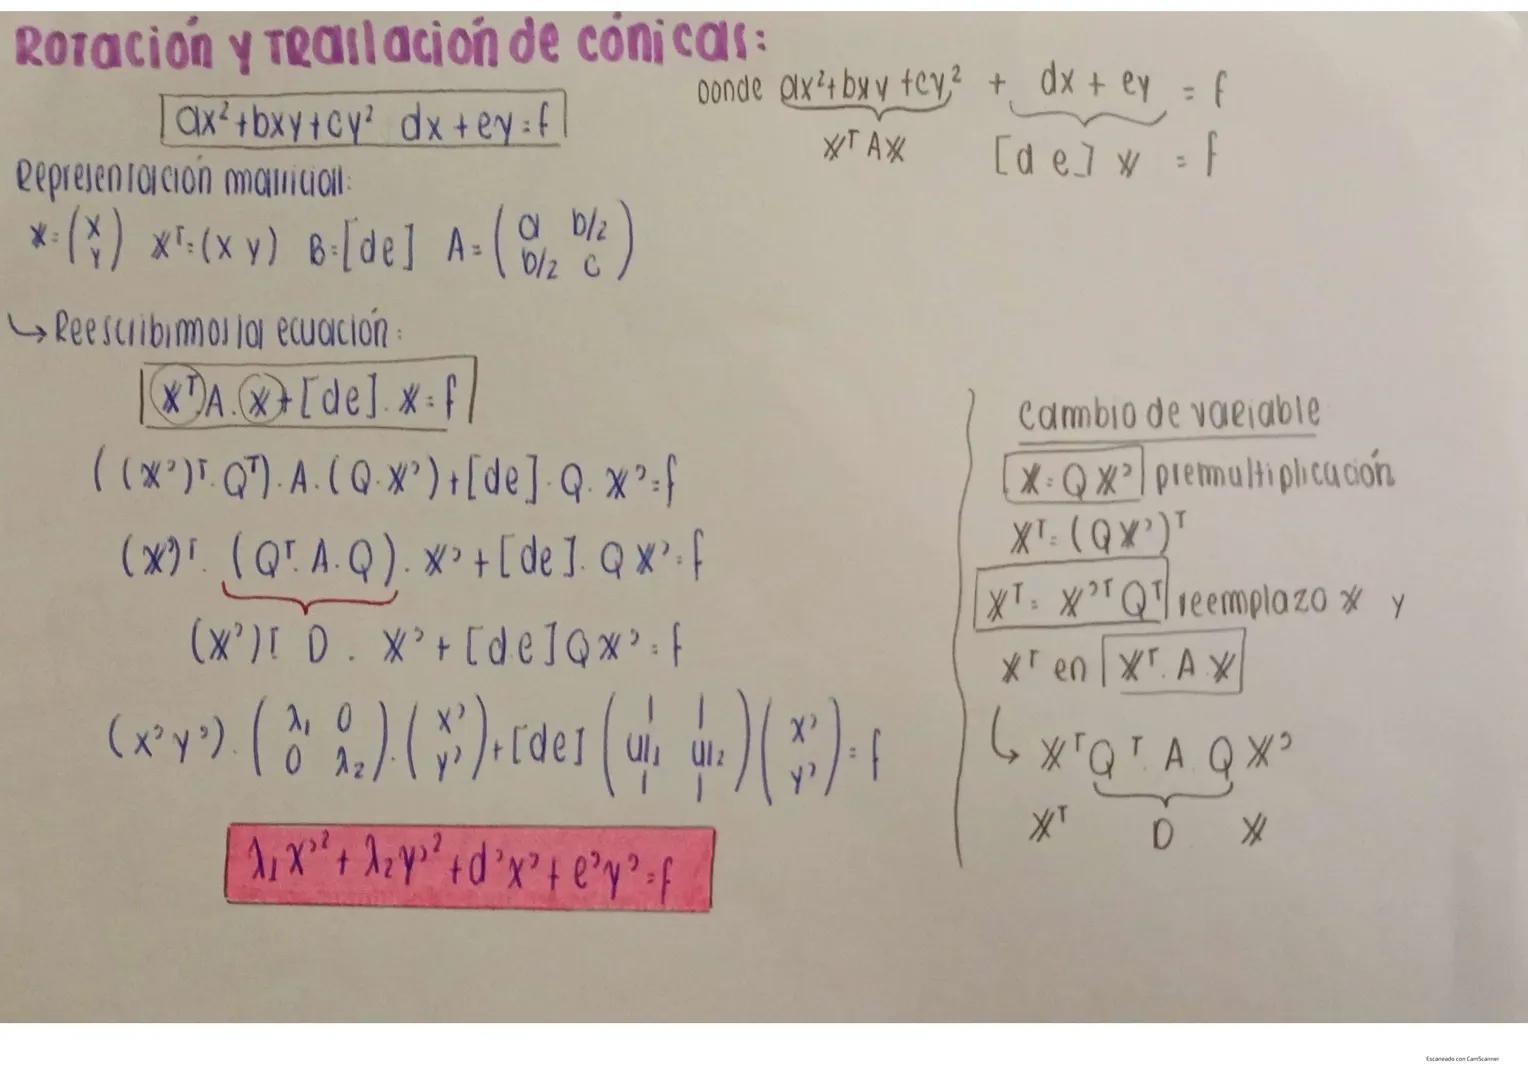 Rotación y Traslación de cónicas:
ax²+bxy+cy² dx+ey=f
Donde ax²+bxy+cy² + dx+ey = f
𝕏ᵀA𝕏 [d e] 𝕏 = f
Representación matricial:
𝕏=(x y) 𝕏ᵀ=(x y) B=[de] A=(a b/2 b/2 c)
↳ Reescribimos la ecuación:
𝕏ᵀA.𝕏+[de].𝕏=f
((𝕏')ᵀ.Qᵀ).A.(Q.𝕏')+[de].Q.𝕏'=f
(𝕏')ᵀ.(Qᵀ.A.Q).𝕏'+[de].Q𝕏'=f
(𝕏')ᵀ D.𝕏'+[de]Q𝕏'=f
(x'y').(λ₁ 0 0 λ₂).(x' y')+[de](| | u₁ u₂ | |)(x' y')=f
λ₁x'²+λ₂y'²+d'x'+e'y'=f
Cambio de variable
𝕏=Q𝕏' premultiplicación
𝕏ᵀ=(Q𝕏')ᵀ
𝕏ᵀ=𝕏'ᵀQᵀ reemplazo 𝕏 y
𝕏ᵀ en 𝕏ᵀ.A.𝕏
↳ 𝕏ᵀQᵀ.A.Q𝕏'
𝕏ᵀ D 𝕏
Escaneado con CamScanner